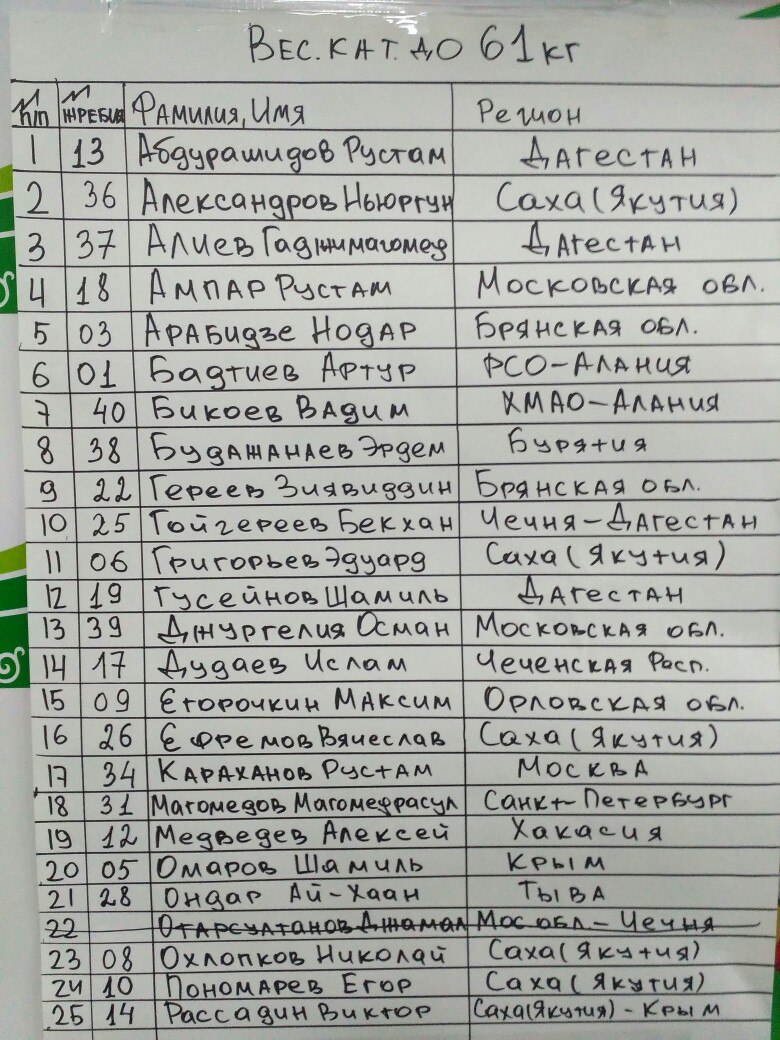 Вес. кат. до 61 кг
№ п/п № жребия Фамилия, Имя Регион
1 13 Абдурашидов Рустам Дагестан
2 36 Александров Ньюргун Саха (Якутия)
3 37 Алиев Гаджимагомед Дагестан
4 18 Ампар Рустам Московская обл.
5 03 Арабидзе Нодар Брянская обл.
6 01 Бадтиев Артур РСО-Алания
7 40 Бикоев Вадим ХМАО-Алания
8 38 Будажанаев Эрдем Бурятия
9 22 Гереев Зиявиддин Брянская обл.
10 25 Гойгереев Бекхан Чечня-Дагестан
11 06 Григорьев Эдуард Саха (Якутия)
12 19 Гусейнов Шамиль Дагестан
13 39 Джургелия Осман Московская обл.
14 17 Дудаев Ислам Чеченская Расп.
15 09 Егорочкин Максим Орловская обл.
16 26 Ефремов Вячеслав Саха (Якутия)
17 34 Караханов Рустам Москва
18 31 Магомедов Магомедрасул Санкт-Петербург
19 12 Медведев Алексей Хакасия
20 05 Омаров Шамиль Крым
21 28 Ондар Ай-Хаан Тыва
22 Отарсултанов Джамал Мос. обл. - Чечня
23 08 Охлопков Николай Саха (Якутия)
24 10 Пономарев Егор Саха (Якутия)
25 14 Рассадин Виктор Саха (Якутия) - Крым